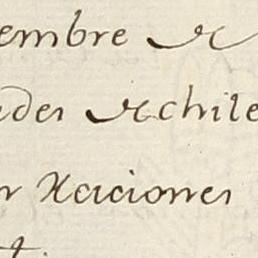 embre de
des de chile
r Naciones